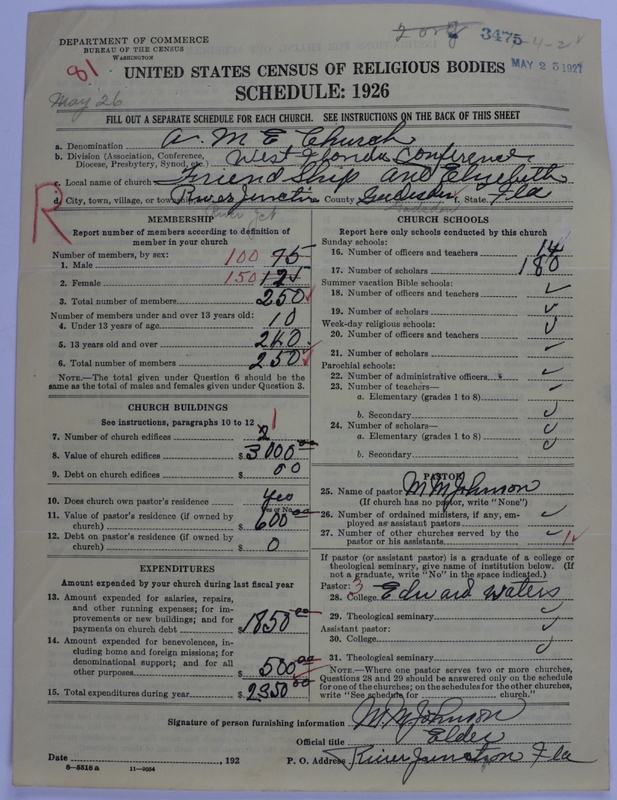 DEPARTMENT OF COMMERCE
BUREAU OF THE CENSUS
WASHINGTON
2 org 3475-4-2
MAY 25 1927
81
May 26
UNITED STATES CENSUS OF RELIGIOUS BODIES
SCHEDULE: 1926
FILL OUT A SEPARATE SCHEDULE FOR EACH CHURCH. SEE INSTRUCTIONS ON THE BACK OF THIS SHEET
a. Denomination A. M E Church
b. Division (Association, Conference, Diocese, Presbytery, Synod, etc.) West Florida Conference
c. Local name of church Friendship and Elizabeth
d. City, town, village, or township River Junction County Gadsden f. State Fla
R
River Jct Gadsden
MEMBERSHIP
Report number of members according to definition of
member in your church
Number of members, by sex:
1. Male 100 75
2. Female 150 125
3. Total number of members 250
Number of members under and over 13 years old:
4. Under 13 years of age 10
5. 13 years old and over 240
6. Total number of members 250
NOTE.—The total given under Question 6 should be the
same as the total of males and females given under Question 3.
CHURCH BUILDINGS
See instructions, paragraphs 10 to 12
7. Number of church edifices 2 1
8. Value of church edifices $3000 00
9. Debt on church edifices $ 00
10. Does church own pastor's residence Yes
(Yes or No)
11. Value of pastor's residence (if owned by
church) $600 00
12. Debt on pastor's residence (if owned by
church) $ 0
EXPENDITURES
Amount expended by your church during last fiscal year
13. Amount expended for salaries, repairs,
and other running expenses; for im-
provements or new buildings; and for
payments on church debt $1850 00
14. Amount expended for benevolences, in-
cluding home and foreign missions; for
denominational support; and for all
other purposes $500 00
15. Total expenditures during year $2350 00
CHURCH SCHOOLS
Report here only schools conducted by this church
Sunday schools:
16. Number of officers and teachers 14
17. Number of scholars 180
Summer vacation Bible schools:
18. Number of officers and teachers
19. Number of scholars
Week-day religious schools:
20. Number of officers and teachers
21. Number of scholars
Parochial schools:
22. Number of administrative officers
23. Number of teachers—
a. Elementary (grades 1 to 8)
b. Secondary
24. Number of scholars—
a. Elementary (grades 1 to 8)
b. Secondary
PASTOR
25. Name of pastor M M Johnson
(If church has no pastor, write "None")
26. Number of ordained ministers, if any, em-
ployed as assistant pastors
27. Number of other churches served by the
pastor or his assistants 1
If pastor (or assistant pastor) is a graduate of a college or
theological seminary, give name of institution below. (If
not a graduate, write "No" in the space indicated.)
Pastor: 3
28. College Edward Waters
29. Theological seminary
Assistant pastor:
30. College
31. Theological seminary
NOTE.—Where one pastor serves two or more churches,
Questions 28 and 29 should be answered only on the schedule
for one of the churches; on the schedules for the other churches,
write "See schedule for church."
Signature of person furnishing information M M Johnson
Official title Elder
Date , 192 P. O. Address River Junction Fla
8-5518 a 11-9054